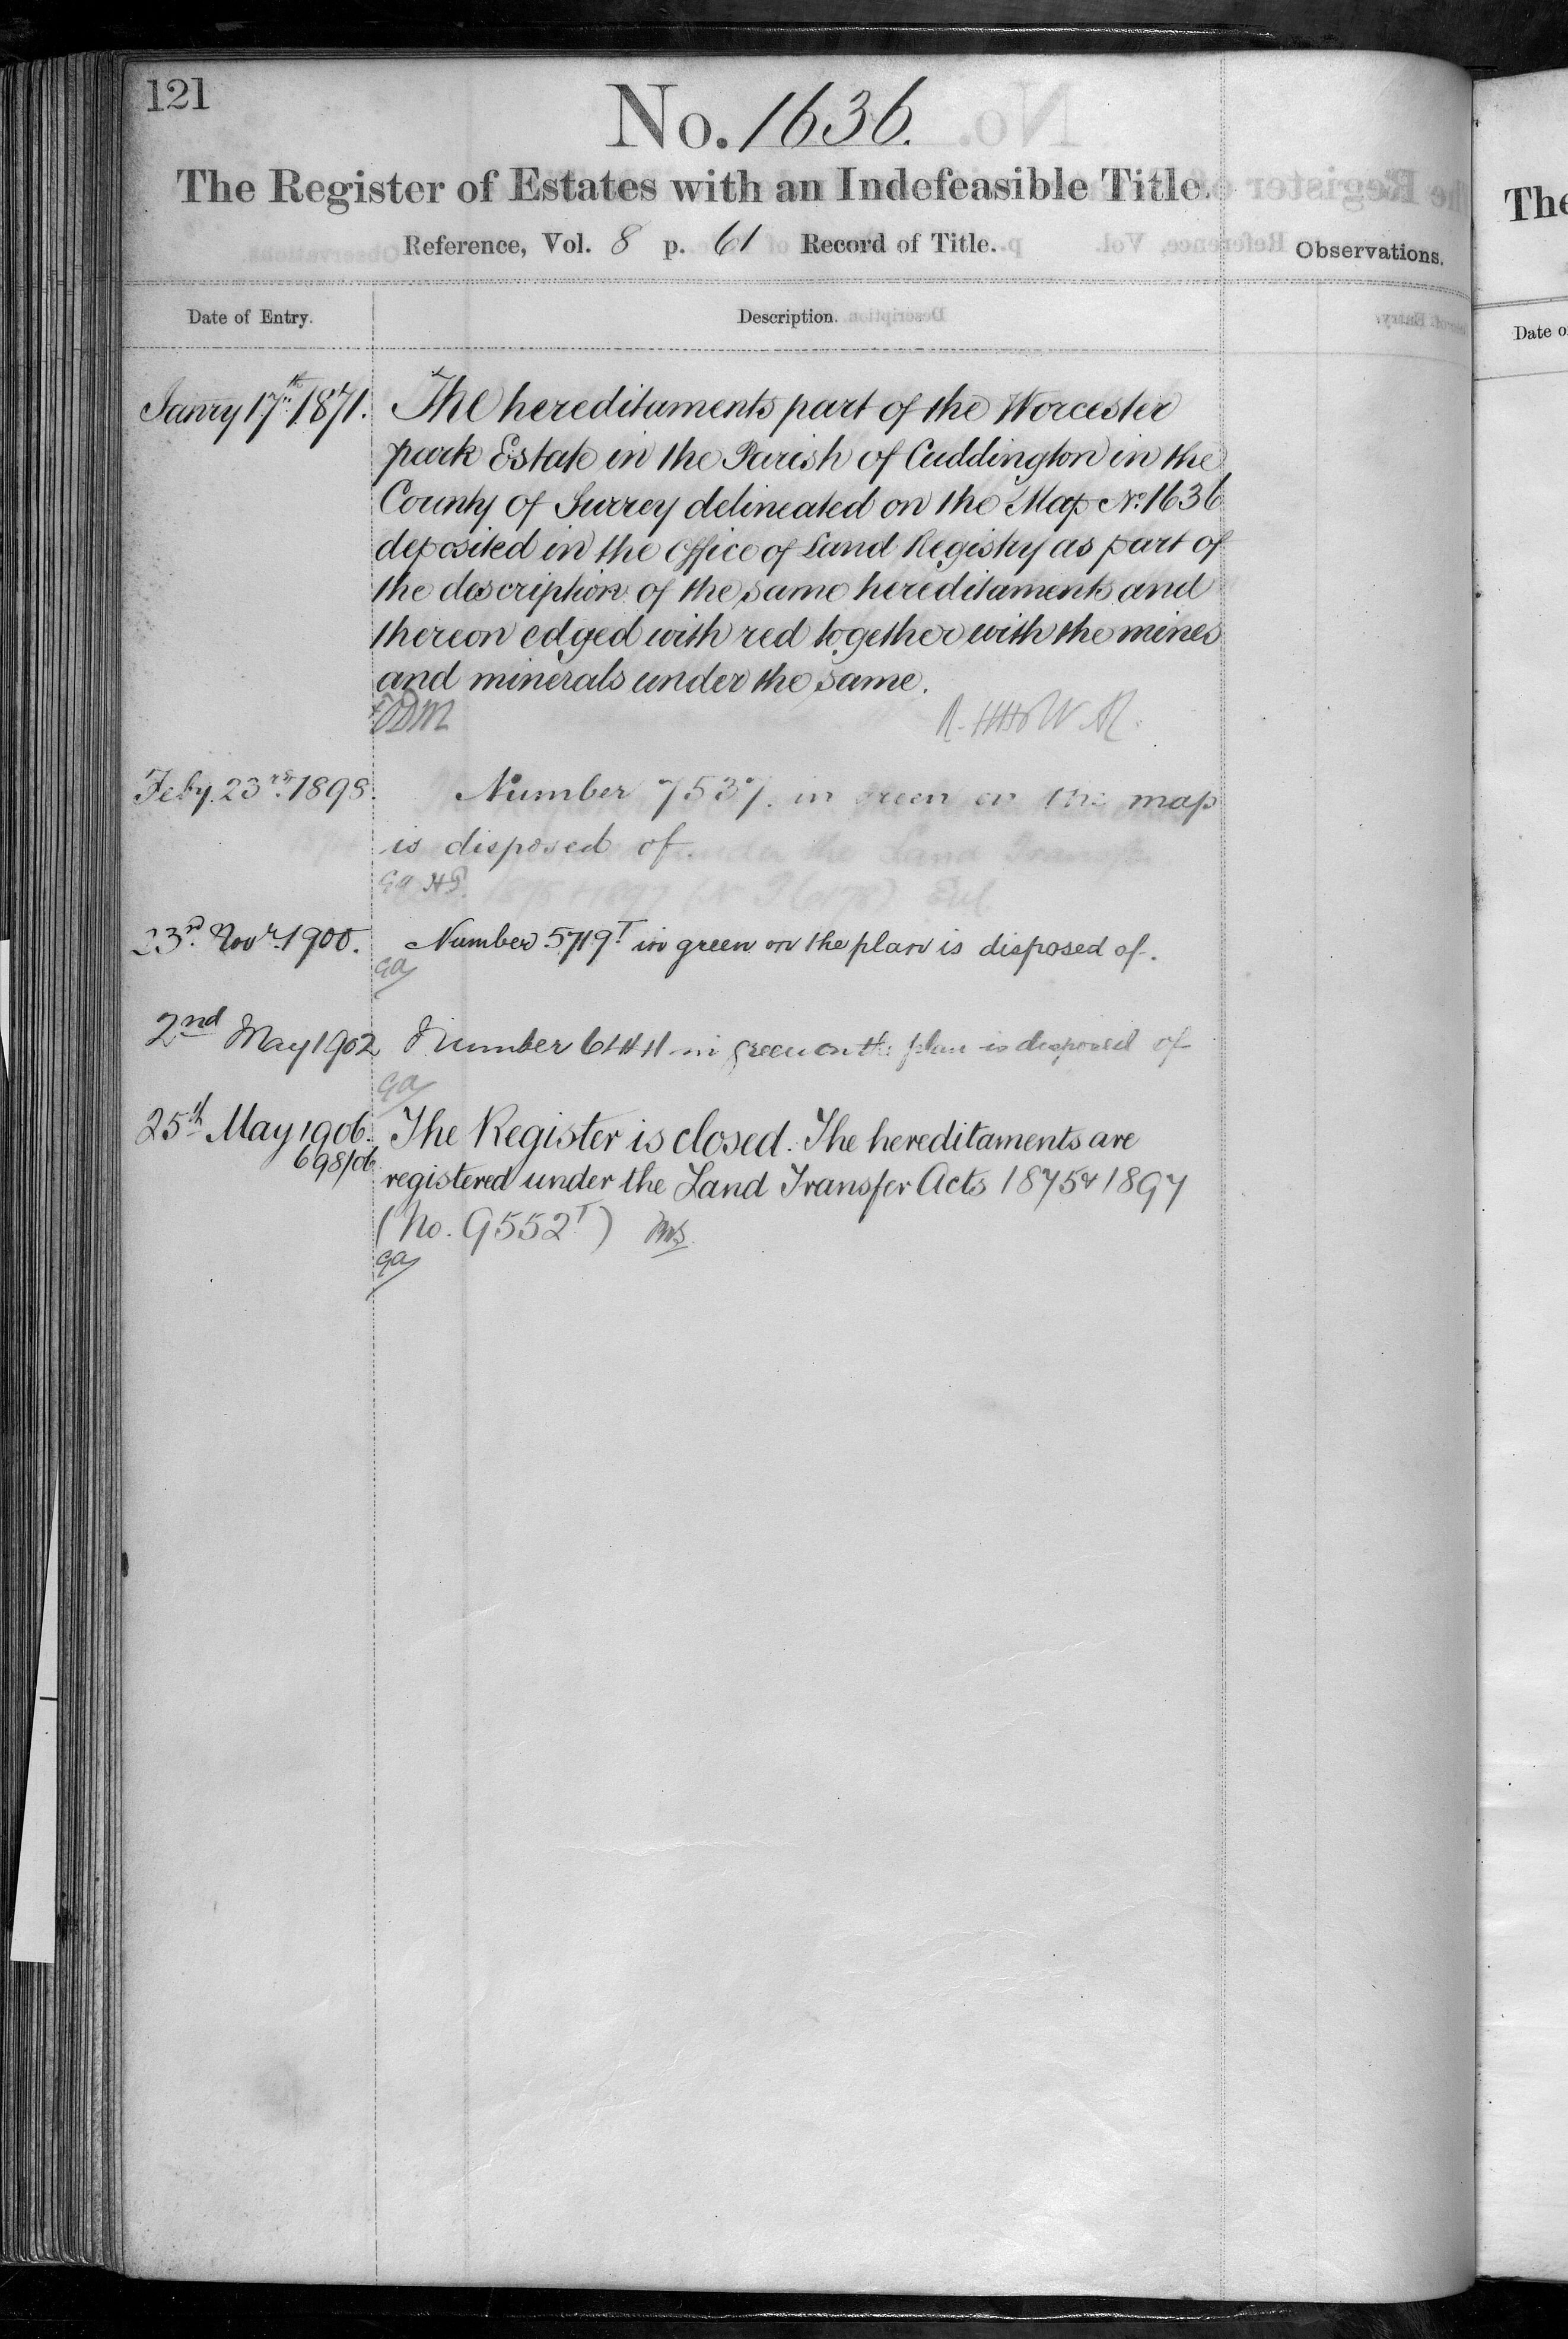 121
No. 1636.
The Register of Estates with an Indefeasible Title.
Reference, Vol. 8 p. 61 Record of Title.
Observations.
Date of Entry.
Description.
Janry 17th 1871.
The hereditaments part of the Worcester
park Estate in the Parish of Cuddington in the
County of Surrey delineated on the Map No. 1636
deposited in the Office of Land Registry as part of
the description of the same hereditaments and
thereon edged with red together with the mines
and minerals under the same.
Feby. 23rd 1898.
Number 7537. in green on the map
is disposed of.
23rd Novr. 1900.
Number 5719T in green on the plan is disposed of.
GA
2nd May 1902
Number in green on the plan is disposed of
GA
25th May 1906.
698/06
The Register is closed. The hereditaments are
registered under the Land Transfer Acts 1875 & 1897
(No. 9552T)
GA
The
Date o